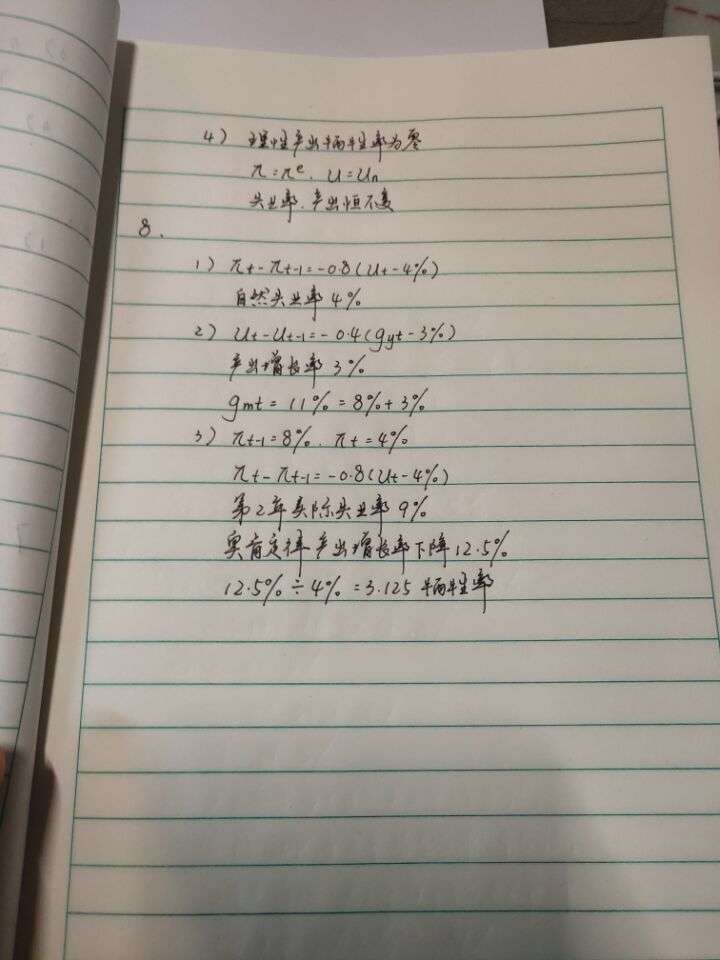 4) 理性产出牺牲率为零
π=πe. u=un
失业率.产出恒不变
8.
1) πt-πt-1=-0.8(ut-4%)
自然失业率4%
2) ut-ut-1=-0.4(gyt-3%)
产出增长率3%
gmt=11%=8%+3%
3) πt-1=8%. πt=4%
πt-πt-1=-0.8(ut-4%)
第2年实际失业率9%
奥肯定律产出增长率下降12.5%
12.5%÷4%=3.125 牺牲率